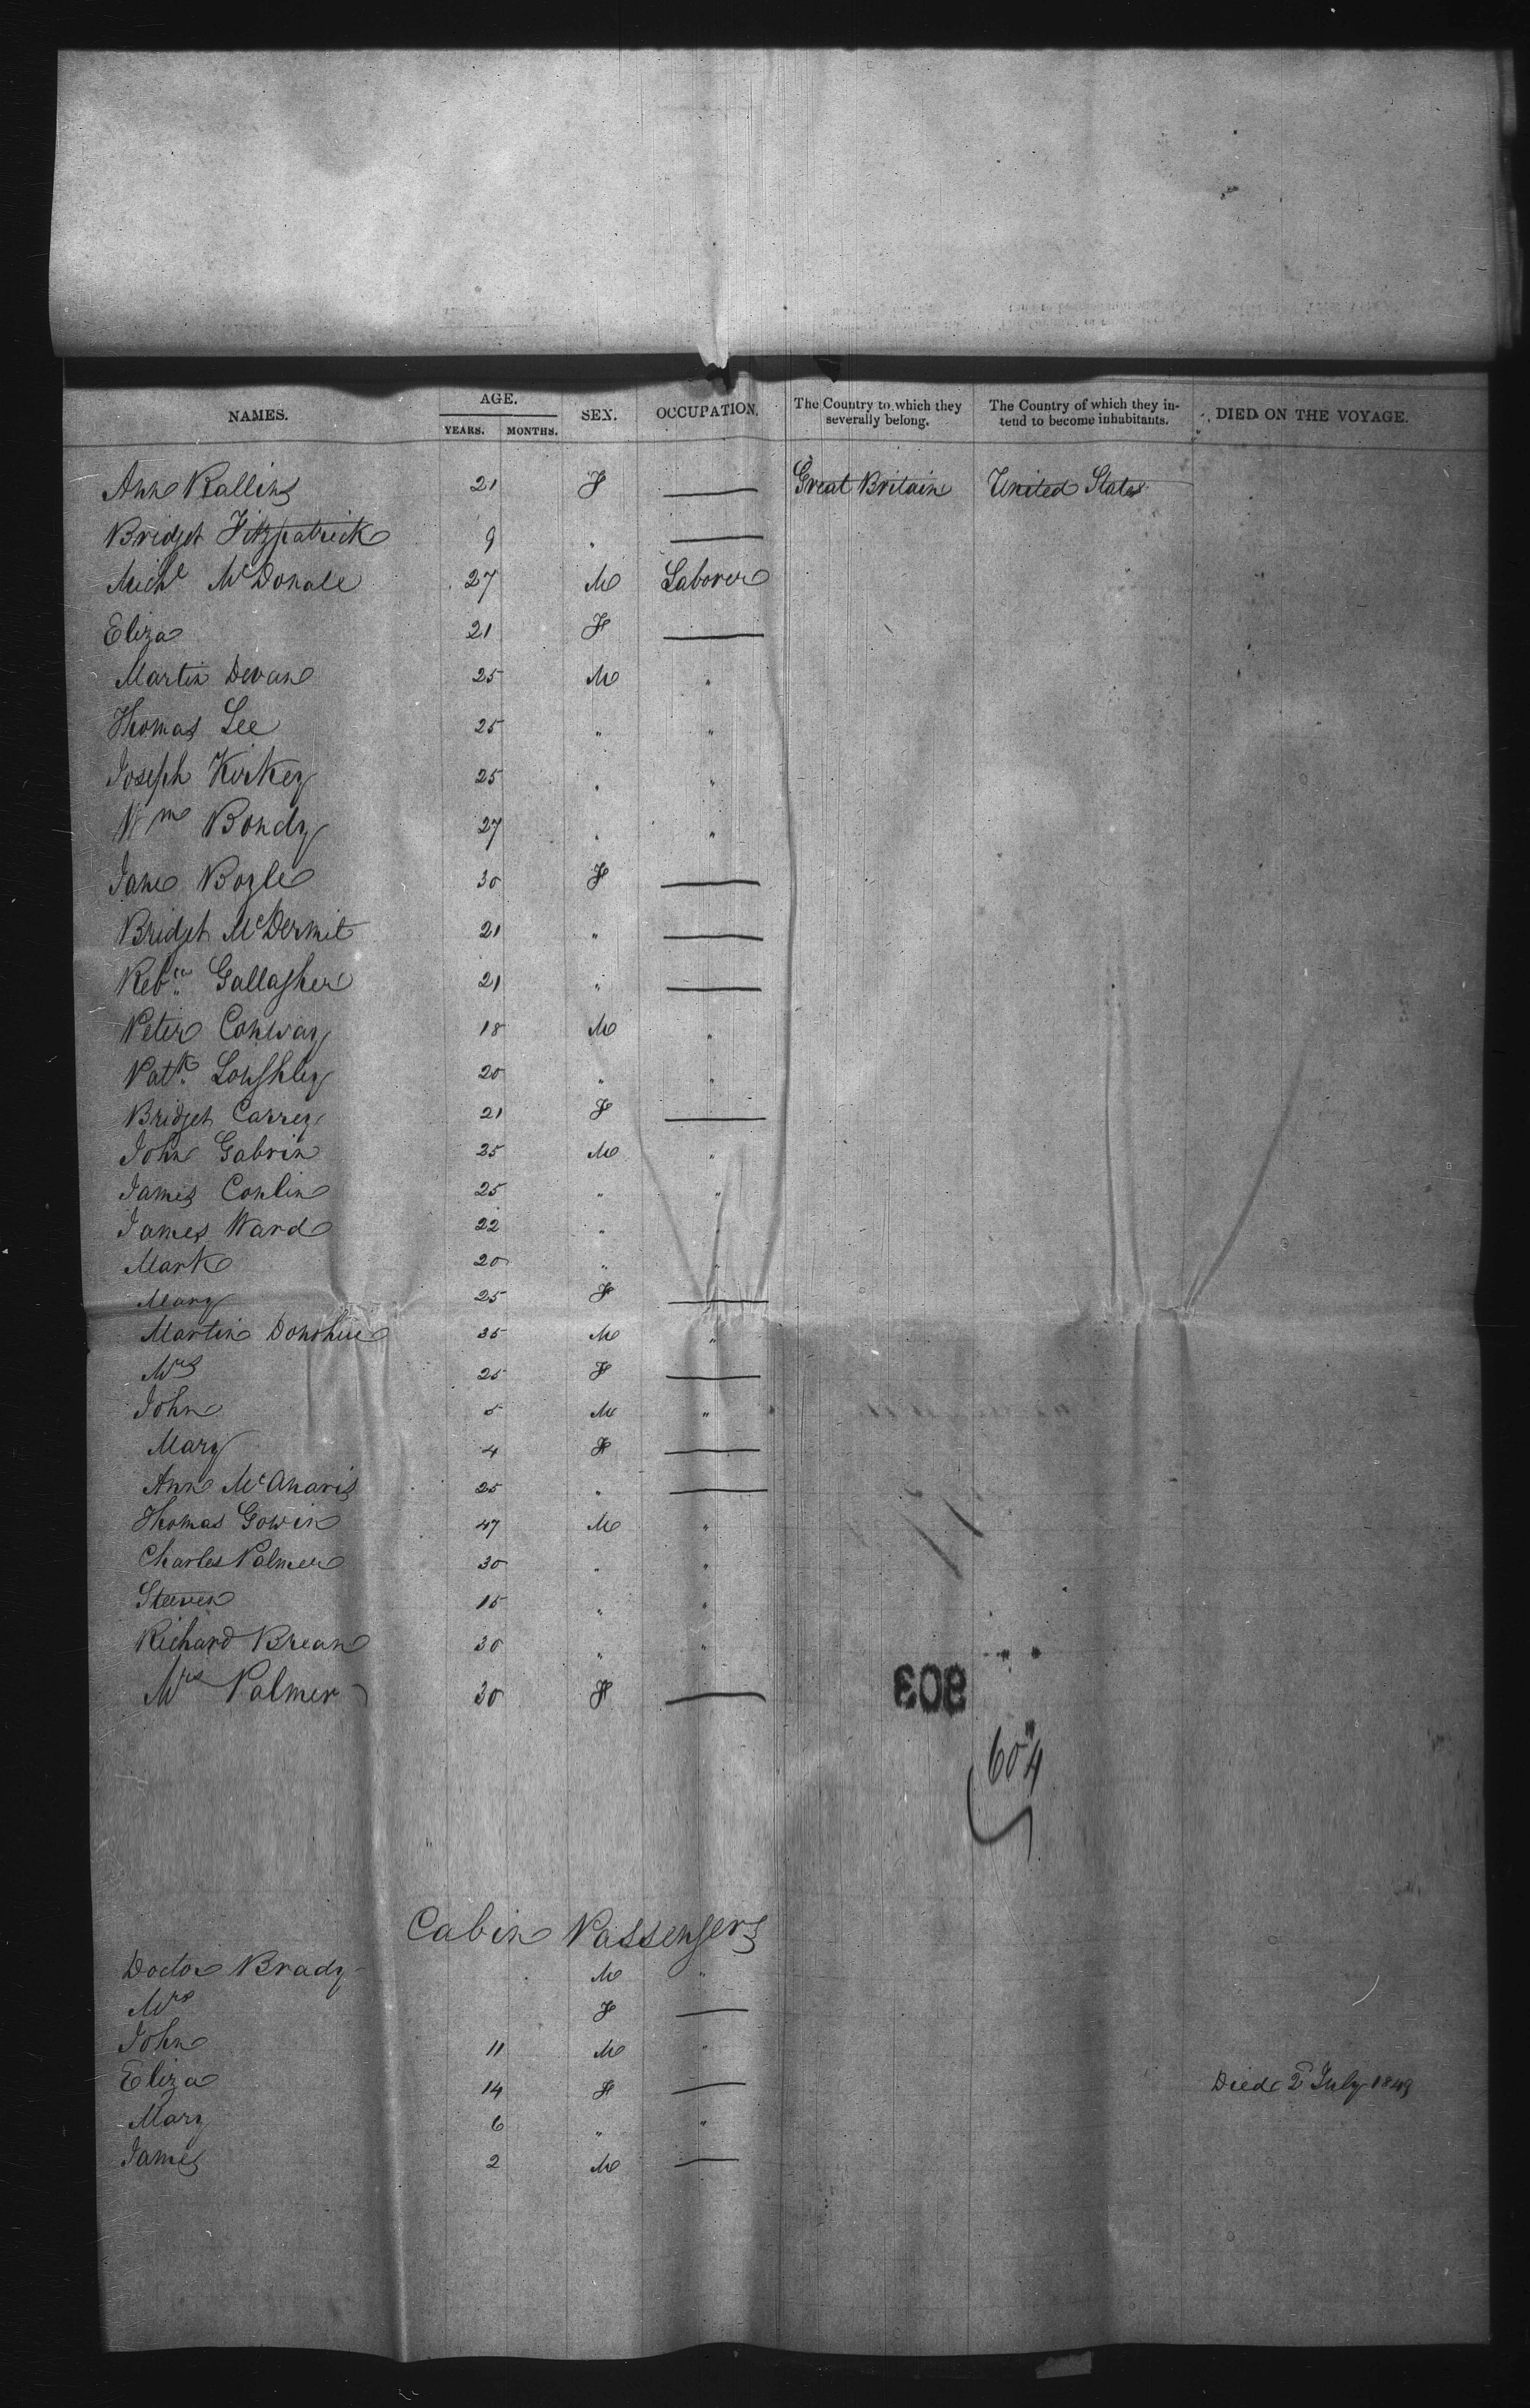 NAMES. AGE. SEX. OCCUPATION. The Country to which they severally belong. The Country of which they intend to become inhabitants. DIED ON THE VOYAGE.
YEARS. MONTHS.
Ann Rallins 21 F — Great Britain United States
Bridget Fitzpatrick 9 " —
Michl McDonale 27 M Laborer
Eliza 21 F —
Martin Devan 25 M "
Thomas Lee 25 " "
Joseph Kirkey 25 " "
Wm Bondy 27 " "
Jane Bogle 30 F —
Bridget McDermit 21 " —
Rebca Gallagher 21 " —
Peter Conway 18 M "
Patk Loughley 20 " "
Bridget Carrey 21 F —
John Gabrin 25 M "
James Conlin 25 " "
James Ward 22 " "
Mark 20 " "
Mary 25 F —
Martin Donohue 35 M "
Mrs 25 F —
John 5 M "
Mary 4 F —
Ann McAnaris 25 " —
Thomas Gowin 47 M "
Charles Palmer 30 " "
Steeven 15 " "
Richard Brean 30 " "
Mrs Palmer 30 F —
604
Cabin Passengers
Doctor Brady M "
Mrs F —
John 11 M "
Eliza 14 F — Died 2d July 1849
Mary 6 " "
James 2 M —